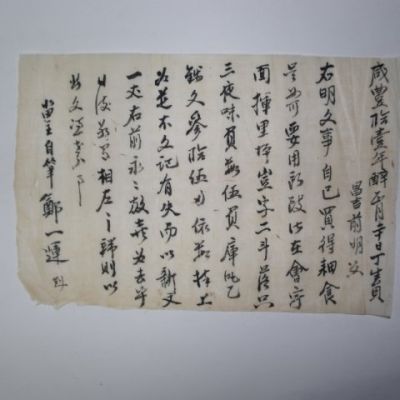 咸豊拾壹年辛酉正月十日丁生員
昌吉前明文
右明文事自己買得耕食
是如可要用所致以在會寧
面揮里坪豈字二斗落只
三夜味負數伍負庫乙
錢文參拾伍兩依數捧上
文記有失而以新文
一丈右前永永放賣為去乎
日後若有相左之弊則以
此文憑考事
畓主自筆鄭一連